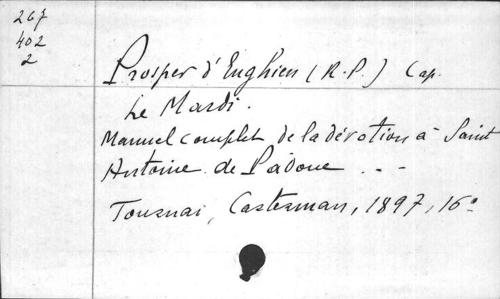 267
402
2
Prosper d'Enghien (R.P.) Cap.
Le Mardi.
Manuel complet de la dévotion à Saint
Antoine de Padoue . . .
Tournai, Casterman, 1897, 16º